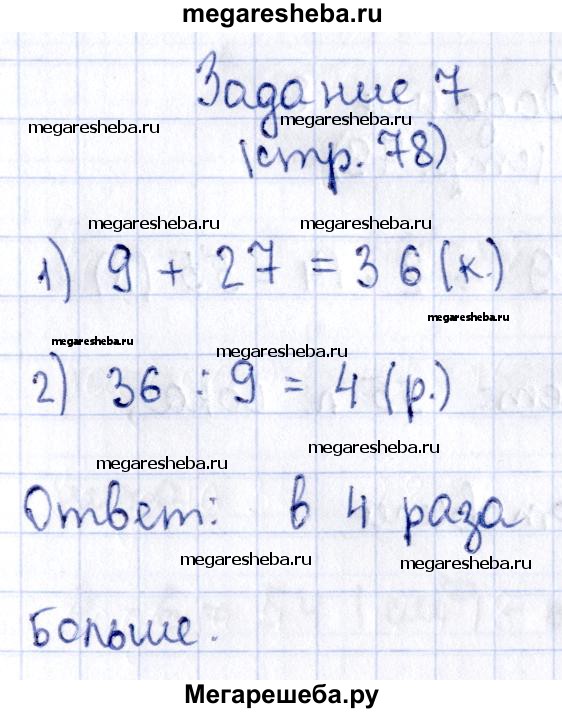 megaresheba.ru
Задание 7
megaresheba.ru
megaresheba.ru
(стр. 78)
megaresheba.ru
megaresheba.ru
1) 9 + 27 = 36 (к.)
megaresheba.ru
megaresheba.ru
megaresheba.ru
2) 36 : 9 = 4 (р.)
megaresheba.ru
megaresheba.ru
Ответ: в 4 раза
megaresheba.ru
megaresheba.ru
больше.
Мегарешеба.ру